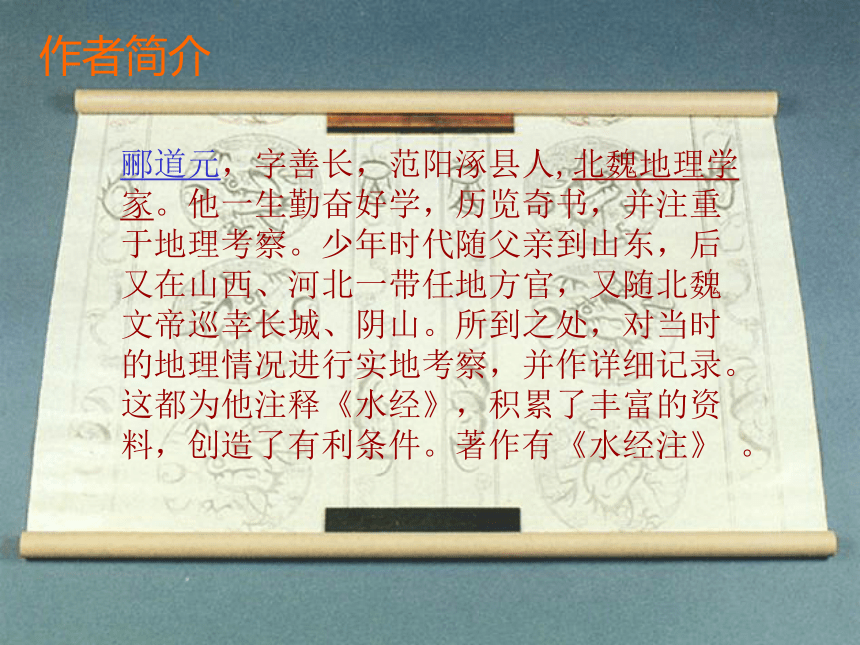 作者简介
郦道元，字善长，范阳涿县人,北魏地理学
家。他一生勤奋好学，历览奇书，并注重
于地理考察。少年时代随父亲到山东，后
又在山西、河北一带任地方官，又随北魏
文帝巡幸长城、阴山。所到之处，对当时
的地理情况进行实地考察，并作详细记录。
这都为他注释《水经》，积累了丰富的资
料，创造了有利条件。著作有《水经注》 。